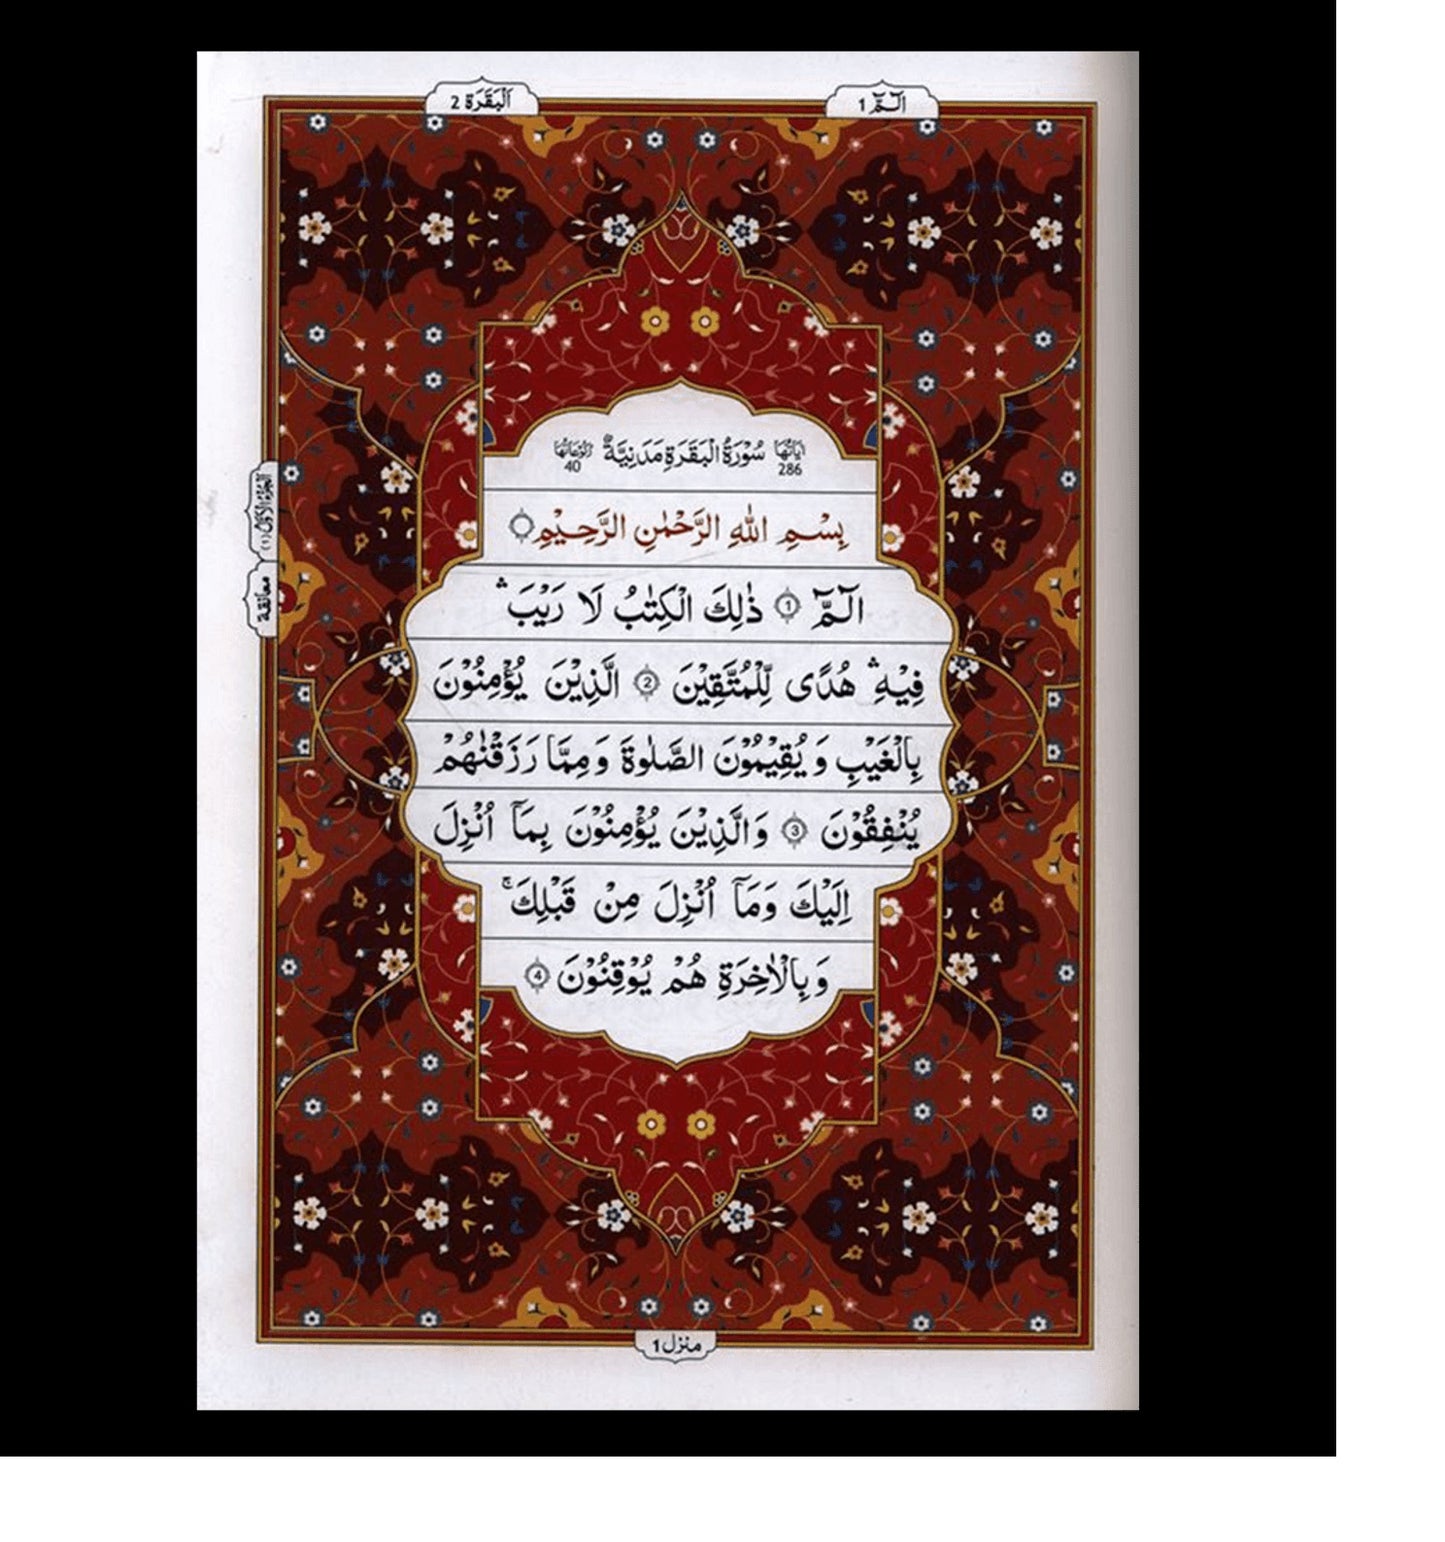 الٓـمّٓ 1
اَلْبَقَرَة 2
اٰيَاتُهَا 286 سُوْرَةُ الْبَقَرَةِ مَدَنِيَّةٌ رُكُوْعَاتُهَا 40
بِسْمِ اللّٰهِ الرَّحْمٰنِ الرَّحِيْمِ
الٓـمّٓ ۝1 ذٰلِكَ الْكِتٰبُ لَا رَيْبَ ۛ
فِيْهِ ۛ هُدًى لِّلْمُتَّقِيْنَ ۝2 الَّذِيْنَ يُؤْمِنُوْنَ
بِالْغَيْبِ وَ يُقِيْمُوْنَ الصَّلٰوةَ وَ مِمَّا رَزَقْنٰهُمْ
يُنْفِقُوْنَ ۝3 وَ الَّذِيْنَ يُؤْمِنُوْنَ بِمَاۤ اُنْزِلَ
اِلَيْكَ وَ مَاۤ اُنْزِلَ مِنْ قَبْلِكَ ۚ
وَ بِالْاٰخِرَةِ هُمْ يُوْقِنُوْنَ ۝4
اَلْجُزْءُ الْاَوَّلُ (١)
معانقة
منزل 1